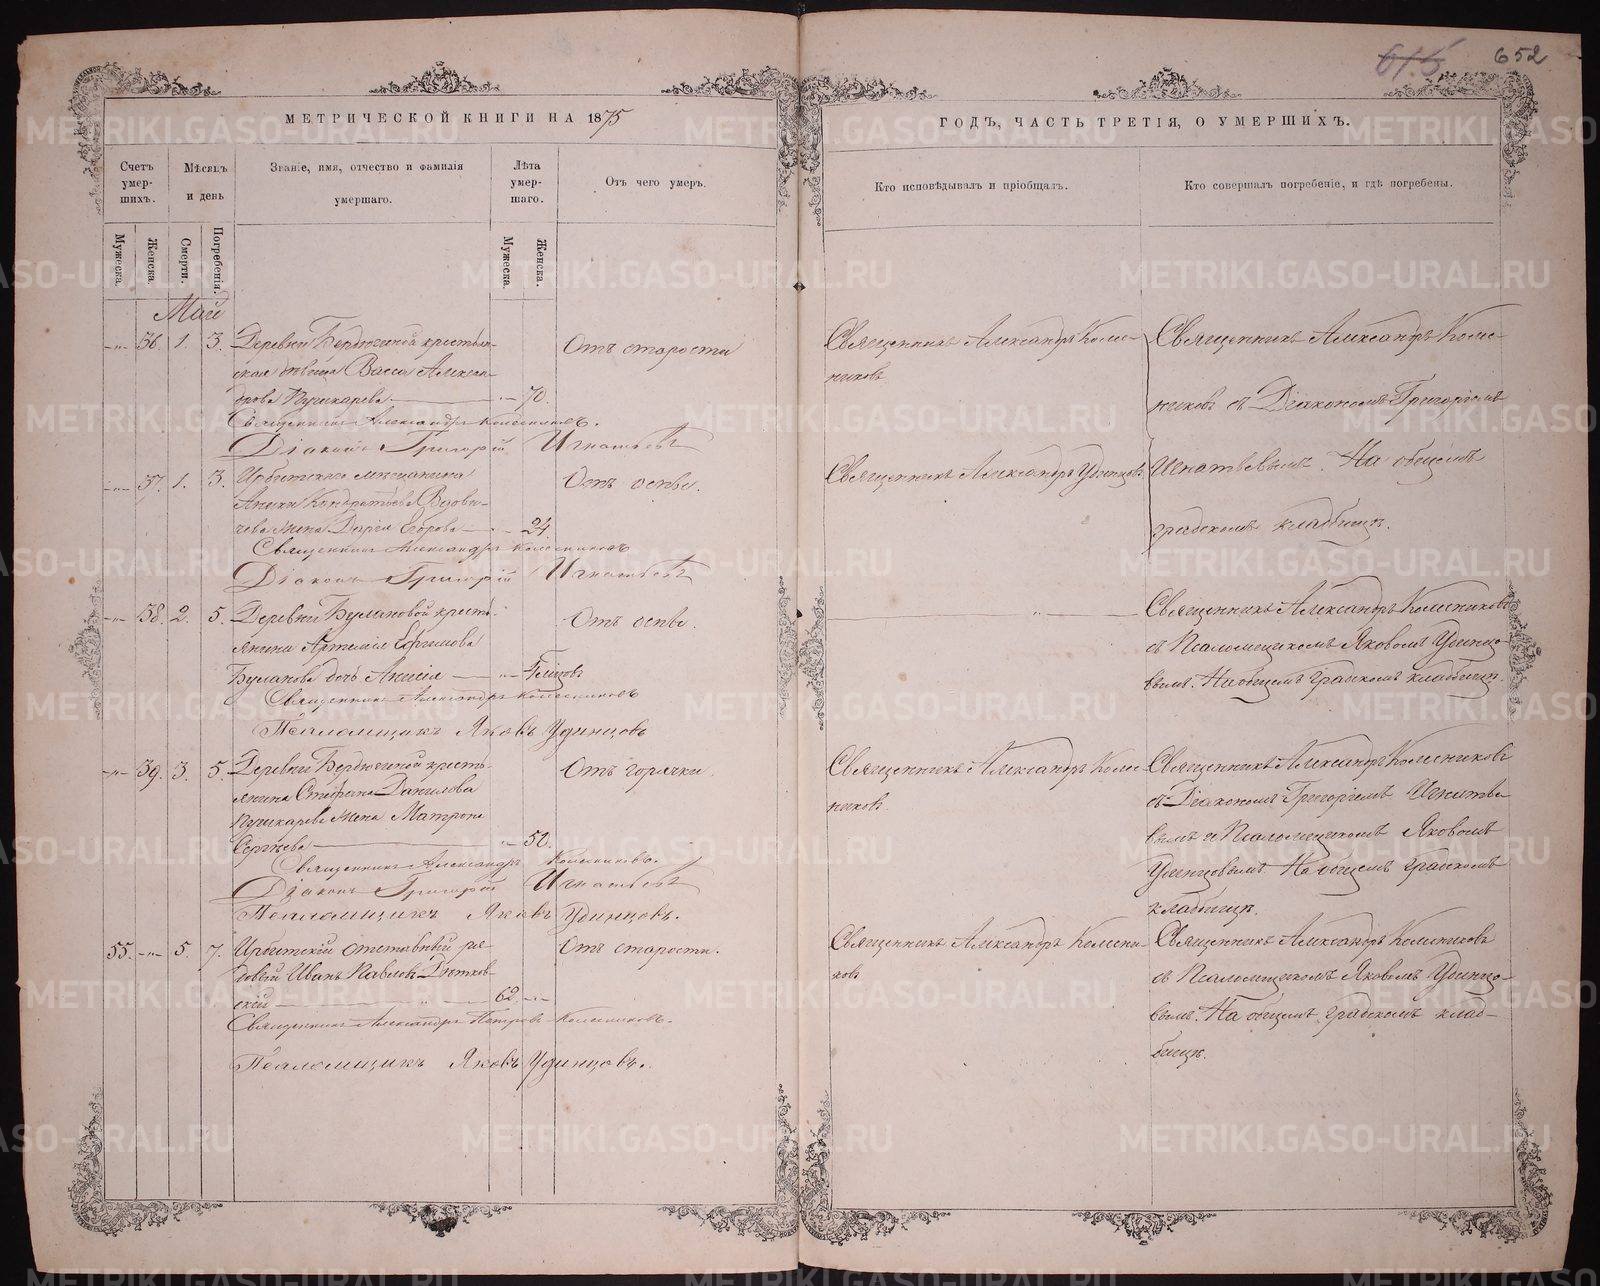 652
МЕТРИЧЕСКОЙ КНИГИ НА 1875
ГОДЪ, ЧАСТЬ ТРЕТІЯ, О УМЕРШИХЪ.
Счетъ умер-шихъ.
Мѣсяцъ и день
Званіе, имя, отчество и фамилія умершаго.
Лѣта умер-шаго.
Отъ чего умеръ.
Кто исповѣдывалъ и пріобщалъ.
Кто совершалъ погребеніе, и гдѣ погребены.
Мужеска.
Женска.
Смерти.
Погребенія.
Мужеска.
Женска.
Май
-"- 36. 1. 3. Деревни Бердюгиной крестьян-
ская дѣвица Васса Алексан-
дрова Пушкарева -"- 70.
Отъ старости
Священникъ Александръ Колесниковъ.
Діаконъ Григорій Игнатьевъ
Священникъ Александръ Колес-
никовъ
Священникъ Александръ Колес-
никовъ съ Діакономъ Григоріемъ
Игнатьевымъ. На общемъ
градскомъ кладбищѣ.
-"- 37. 1. 3. Ирбитскаго мѣщанина
Аники Кондратьева
жена Дарья Егорова - 24.
Отъ оспы.
Священникъ Александръ Колесниковъ
Діаконъ Григорій Игнатьевъ
Священникъ Александръ Удинцовъ
-"- 38. 2. 5. Деревни Булановой кресть-
янина Артемія Ефимова
Буланова дочь Анисія -"-
Отъ оспы.
Священникъ Александръ Колесниковъ
Псаломщикъ Яковъ Удинцовъ
-"-
Священникъ Александръ Колесниковъ
съ Псаломщикомъ Яковомъ Удинцо-
вымъ. На общемъ градскомъ кладбищѣ.
-"- 39. 3. 5. Деревни Бердюгиной кресть-
янина Стефана Данилова
Пушкарева жена Матрона
Сергѣева -"- 50.
Отъ горячки.
Священникъ Александръ Колесниковъ.
Діаконъ Григорій Игнатьевъ
Псаломщикъ Яковъ Удинцовъ.
Священникъ Александръ Колес-
никовъ.
Священникъ Александръ Колесниковъ
съ Діакономъ Григоріемъ Игнатье-
вымъ и Псаломщикомъ Яковомъ
Удинцовымъ. На общемъ градскомъ
кладбищѣ.
55. -"- 5. 7. Ирбитскій отставный ря-
довый Иванъ Павловъ
скій -"- 62 -"-
Отъ старости.
Священникъ Александръ Петровъ Колесниковъ.
Псаломщикъ Яковъ Удинцовъ.
Священникъ Александръ Колесни-
ковъ
Священникъ Александръ Колесниковъ
съ Псаломщикомъ Яковомъ Удинцо-
вымъ. На общемъ градскомъ клад-
бищѣ.
METRIKI.GASO-URAL.RU